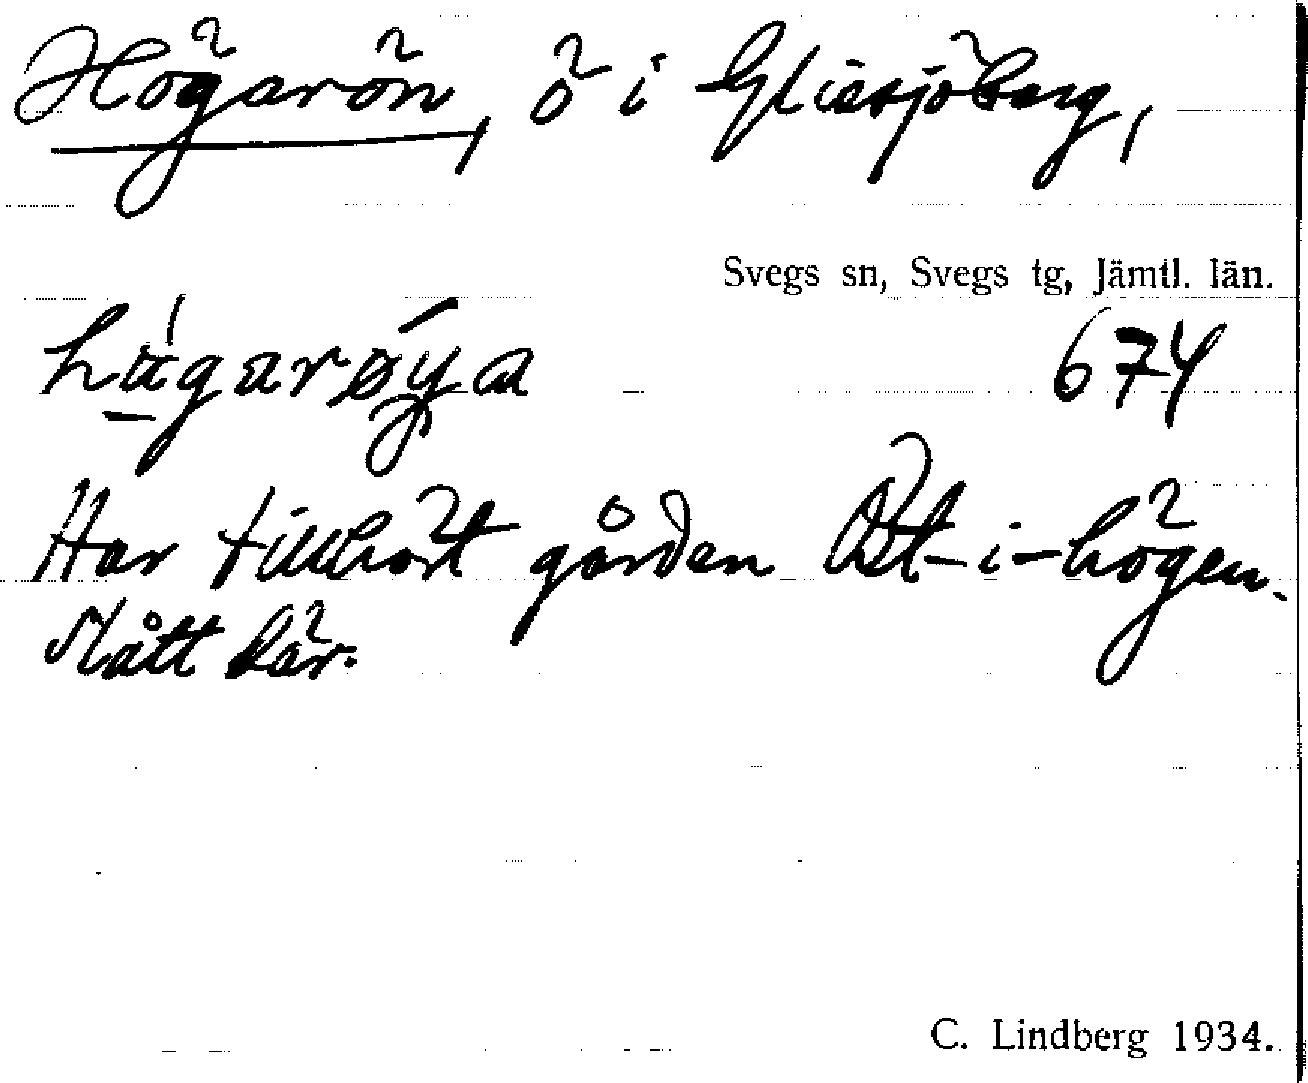 Högarön, ö i Glissjöberg,
Svegs sn, Svegs tg, Jämtl. län.
674
Har tillhört gården Öst-i-högen.
Slått där.
C. Lindberg 1934.